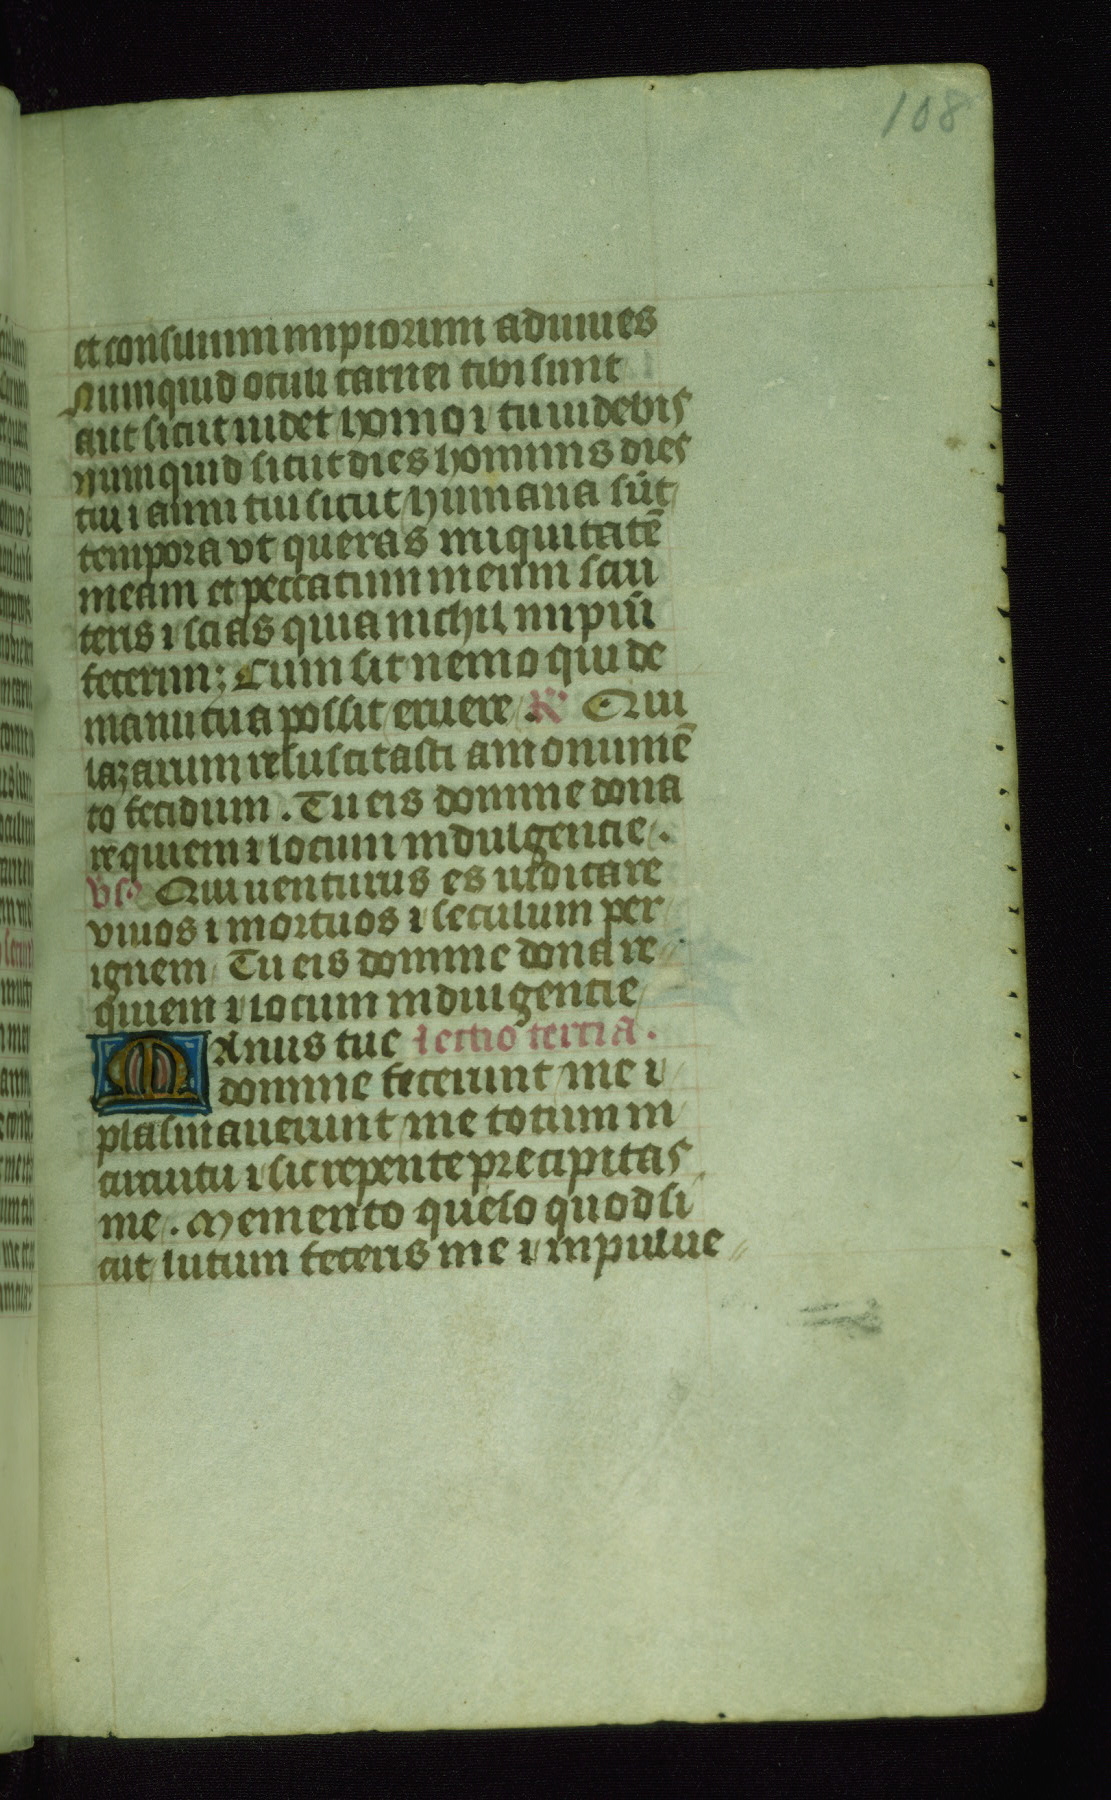 108
et consilium impiorum adiuues
Numquid oculi carnei tibi sunt
aut sicut uidet homo ⁊ tu uidebis
numquid sicut dies hominis dies
tui ⁊ anni tui sicut humana sūt
tempora vt queras iniquitatē
meam et peccatum meum scru
teris ⁊ scias quia nichil impiū
fecerim; Cum sit nemo qui de
manu tua possit eruere . R Qui
lazarum resuscitasti a monumē
to fetidum . Tu eis domine dona
requiem ⁊ locum indulgentie .
vs Qui venturus es iudicare
viuos ⁊ mortuos ⁊ seculum per
ignem Tu eis domine dona re
quiem ⁊ locum indulgentie
Manus tue lectio tercia .
domine fecerunt me ⁊
plasmauerunt me totum in
circuitu ⁊ sic repente precipitas
me . Memento queso quod si
cut lutum feceris me ⁊ in pulue